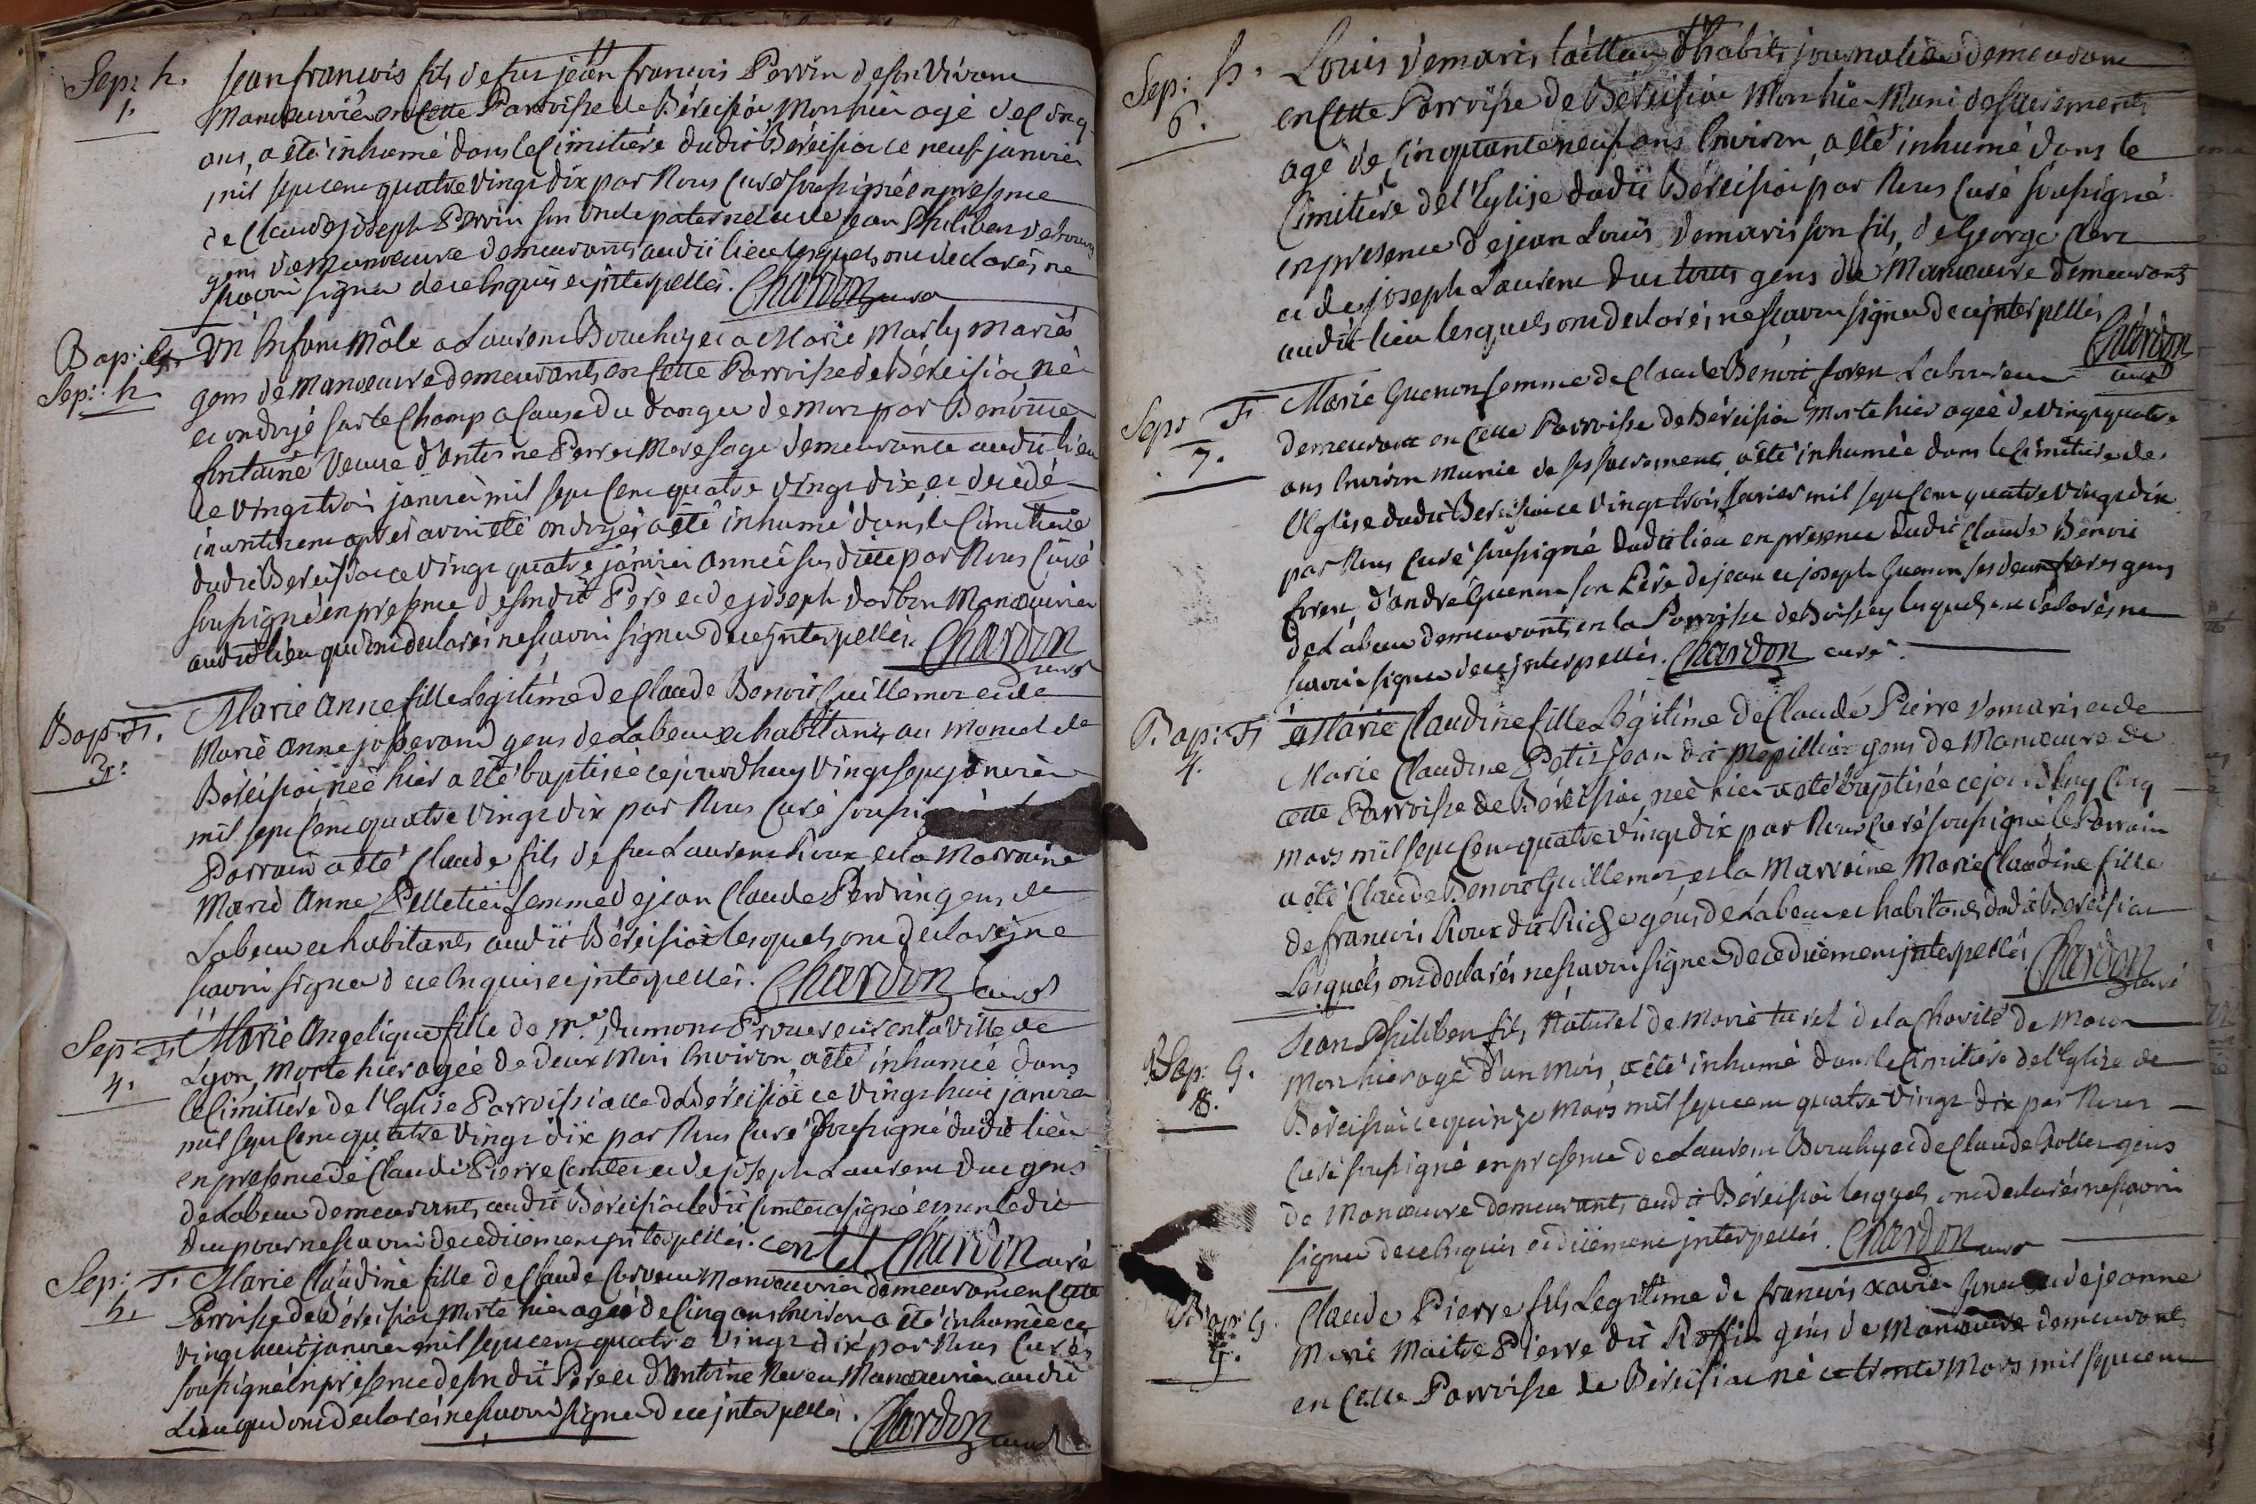 Sep: h.
1.
jean francois fils de feu jean francois Perrin de son vivant
manouvrier en cette Parroisse de Béreisiat Mort hier agé de Cinq
ans, a été inhumé dans le Cimitiére dudit Béreisiat ce neuf janvier
mil sept cent quatre vingt dix par Nous Curé soussigné en presence
de Claude joseph Perrin son oncle paternel et de jean Philibert
gens de manoeuvre demeurants audit lieu lesquels ont declarés ne
sçavoir signer de ce Enquis et jnterpellés. Chardon curé
Bap: et
Sep: h
Un Enfant Mâle a Laurent Bouchy et a Marie Marly Mariés
gens de manoeuvre demeurants en Cette Parroisse de Béreisiat, né
et ondoyé sur le Champ a Cause du danger de mort par Benoitte
fontaine Veuve d'antoine Perret Mere sage demeurante audit lieu
ce vingt trois janvier mil sept Cent quatre vingt dix, et decedé
incontinent apres avoir été ondoyé, a été inhumé dans le Cimitiere
dudit Béreisiat ce vingt quatre janvier année susditte par Nous Curé
soussigné en presence de son dit Pere et de joseph Darbon Manouvrier
audit lieu qui ont declarés ne sçavoir signer de ce jnterpellés. Chardon
curé
Bap: F.
3.
Marie Anne fille Legitime de Claude Benoit Guillemot et de
Marie Anne josserand gens de Labeur et habitants au Moncel de
Béreisiat, née hier a été baptisée ce jourdhuy vingt sept janvier
mil sept Cent quatre vingt dix par Nous Curé
Parrain a été Claude fils de feu Laurent Roux et la Marraine
Marie Anne Pelletier femme de jean Claude Perdrix gens de
Labeur et habitants audit Béreisiat lesquels ont declarés ne
sçavoir signer de ce Enquis et jnterpellés. Chardon curé
Sep: F.
4.
Marie Angelique fille de Mr. Dumont en la Ville de
Lyon, Morte hier agée de deux Mois Environ, a été inhumée dans
le Cimitiére de l'Eglise Parroissialle de Béreisiat ce vingt huit janvier
mil sept Cent quatre vingt dix par Nous Curé soussigné dudit lieu
en presence de Claude Pierre Contet et de joseph Laurent Duc gens
de Labeur demeurants audit Béreisiat ledit Contet a signé et non ledit
Duc pour ne sçavoir de ce dûement jnterpellés. contet Chardon curé
Sep: F.
5.
Marie Claudine fille de Claude manouvrier demeurant en Cette
Parroisse de Béreisiat Morte hier agée de Cinq ans Environ a été inhumée ce
vingt huit janvier mil sept cent quatre vingt dix par Nous Curé
soussigné en presence de son dit Pere et d'Antoine Neveu Manouvrier audit
Lieu qui ont declarés ne sçavoir signer de ce jnterpellés. Chardon
curé
Sep: h.
6.
Louis Demaris tailleur d'habits journalier demeurant
en Cette Parroisse de Béreisiat Mort hier Muni de ses sacrements
agé de Cinquante neuf ans Environ, a été inhumé dans le
Cimitiére de l'Eglise dudit Béreisiat par Nous Curé soussigné
en presence de jean Louis Demaris son fils, de George Clerc
et de joseph Laurent Duc tous gens de Manoeuvre demeurants
audit lieu lesquels ont declarés ne sçavoir signer de ce jnterpellés
Chardon
curé
Sep: F
7.
Marie Guenon femme de Claude Benoit forest Laboureur
demeurant en Cette Parroisse de Béreisiat Morte hier agée de vingt quatre
ans Environ Munie de ses sacrements, a été inhumée dans le Cimitiére de
l'Eglise dudit Béreisiat ce vingt trois fevrier mil sept Cent quatre vingt dix
par Nous Curé soussigné dudit lieu en presence dudit Claude Benoit
forest, d'andré Guenon son Pere, de jean et joseph Guenon ses deux freres gens
de Labeur demeurants en la Parroisse de Boissey lesquels ont declarés ne
sçavoir signer de ce jnterpellés. Chardon curé
Bap: F
4.
Marie Claudine fille Légitime de Claude Pierre Demaris et de
Marie Claudine Petit jean dit Mepilliat gens de Manoeuvre de
cette Parroisse de Béreisiat, née hier a été baptisée ce jourdhuy Cinq
Mars mil sept Cent quatre vingt dix par Nous Curé soussigné le Parrain
a été Claude Benoit Guillemot, et la Marraine Marie Claudine fille
de francois Roux dit Riche gens de Labeur et habitants dudit Béreisiat
Lesquels ont declarés ne sçavoir signer de ce dûement jnterpellés Chardon
curé
Sep: G.
8.
Jean Philibert fils Naturel de Marie turel de la Charité de Macon
Mort hier agé d'un Mois, a été inhumé dans le Cimitiére de l'Eglise de
Béreisiat ce quinze Mars mil sept cent quatre vingt dix par Nous
Curé soussigné en presence de Laurent Bouchy et de Claude Rollet gens
de Manoeuvre demeurants audit Béreisiat lesquels ont declarés ne sçavoir
signer de ce Enquis et dûement jnterpellés. Chardon curé
Bap: G.
Claude Pierre fils Legitime de francois xavier et de jeanne
Marie Maitre Pierre dit Roffin gens de Manoeuvre demeurants
en Cette Parroisse de Béreisiat né ce trente Mars mil sept cent